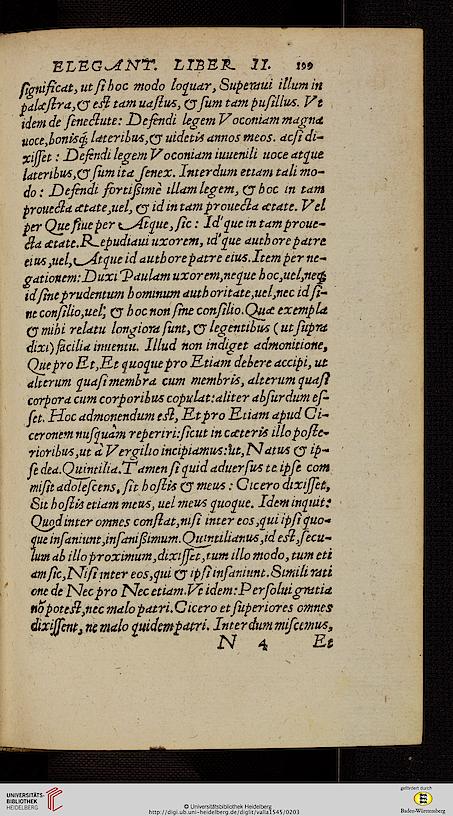 ELEGANT. LIBER II. 199
significat, ut si hoc modo loquar, Superaui illum in
palæstra, & est tam uastus, & sum tam pusillus. Vt
idem de senectute: Defendi legem Voconiam magna
uoce, bonisq́; lateribus, & uidetis annos meos. acsi di-
xisset: Defendi legem Voconiam iuuenili uoce atque
lateribus, & sum ita senex. Interdum etiam tali mo-
do: Defendi fortißimè illam legem, & hoc in tam
prouecta ætate, uel, & id in tam prouecta ætate. Vel
per Que siue per Atque, sic: Id'que in tam proue-
cta ætate. Repudiaui uxorem, id'que authore patre
eius, uel, Atque id authore patre eius. Item per ne-
gationem: Duxi Paulam uxorem, neque hoc, uel, neq;
id sine prudentum hominum authoritate, uel, nec id si-
ne consilio, uel, & hoc non sine consilio. Quæ exempla
& mihi relatu longiora sunt, & legentibus (ut supra
dixi) facilia inuentu. Illud non indiget admonitione,
Que pro Et, Et quoque pro Etiam debere accipi, ut
alterum quasi membra cum membris, alterum quasi
corpora cum corporibus copulat: aliter absurdum es-
set. Hoc admonendum est, Et pro Etiam apud Ci-
ceronem nusquàm reperiri: sicut in cæteris illo poste-
rioribus, ut à Vergilio incipiamus: ut, Natus & ip-
se dea. Quintilia. Tamen si quid aduersus te ipse com
misit adolescens, sit hostis & meus: Cicero dixisset,
Sit hostis etiam meus, uel meus quoque. Idem inquit:
Quod inter omnes constat, nisi inter eos, qui ipsi quo-
que insaniunt, insanißimum. Quintilianus, id est, secu-
lum ab illo proximum, dixisset, tum illo modo, tum eti
am sic, Nisi inter eos, qui & ipsi insaniunt. Simili rati
one de Nec pro Nec etiam. Vt idem: Persolui gratia
nõ potest, nec malo patri. Cicero et superiores omnes
dixissent, ne malo quidem patri. Interdum miscemus,
N 4 Et
UNIVERSITÄTS-
BIBLIOTHEK
HEIDELBERG
© Universitätsbibliothek Heidelberg
http://digi.ub.uni-heidelberg.de/diglit/valla1545/0203
gefördert durch
Baden-Württemberg